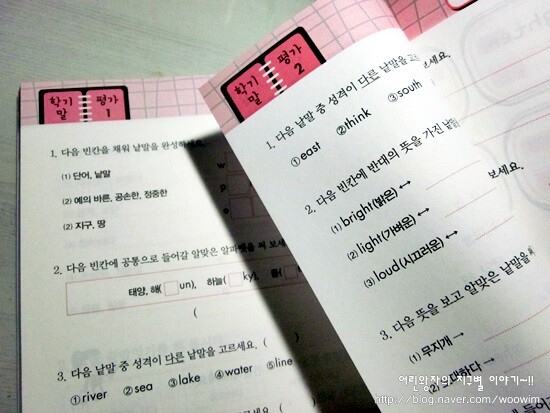 학기말 평가 1
1. 다음 빈칸을 채워 낱말을 완성하세요.
(1) 단어, 낱말 w
(2) 예의 바른, 공손한, 정중한 p
(2) 지구, 땅 e
2. 다음 빈칸에 공통으로 들어갈 알맞은 알파벳을 써 보세
태양, 해(□un), 하늘(□ky),
(
3. 다음 낱말 중 성격이 다른 낱말을 고르세요. ( )
①river ②sea ③lake ④water ⑤line
학기말 평가 2
1. 다음 낱말 중 성격이 다른 낱말을 고르세요.
①east ②think ③south
2. 다음 빈칸에 반대의 뜻을 가진 낱말
보세요.
(1) bright(밝은) ↔
(2) light(가벼운) ↔
(3) loud(시끄러운) ↔
3. 다음 뜻을 보고 알맞은 낱말을
(1) 무지개 →
어린왕자의 지구별 이야기~!!
http://blog.naver.com/woowim